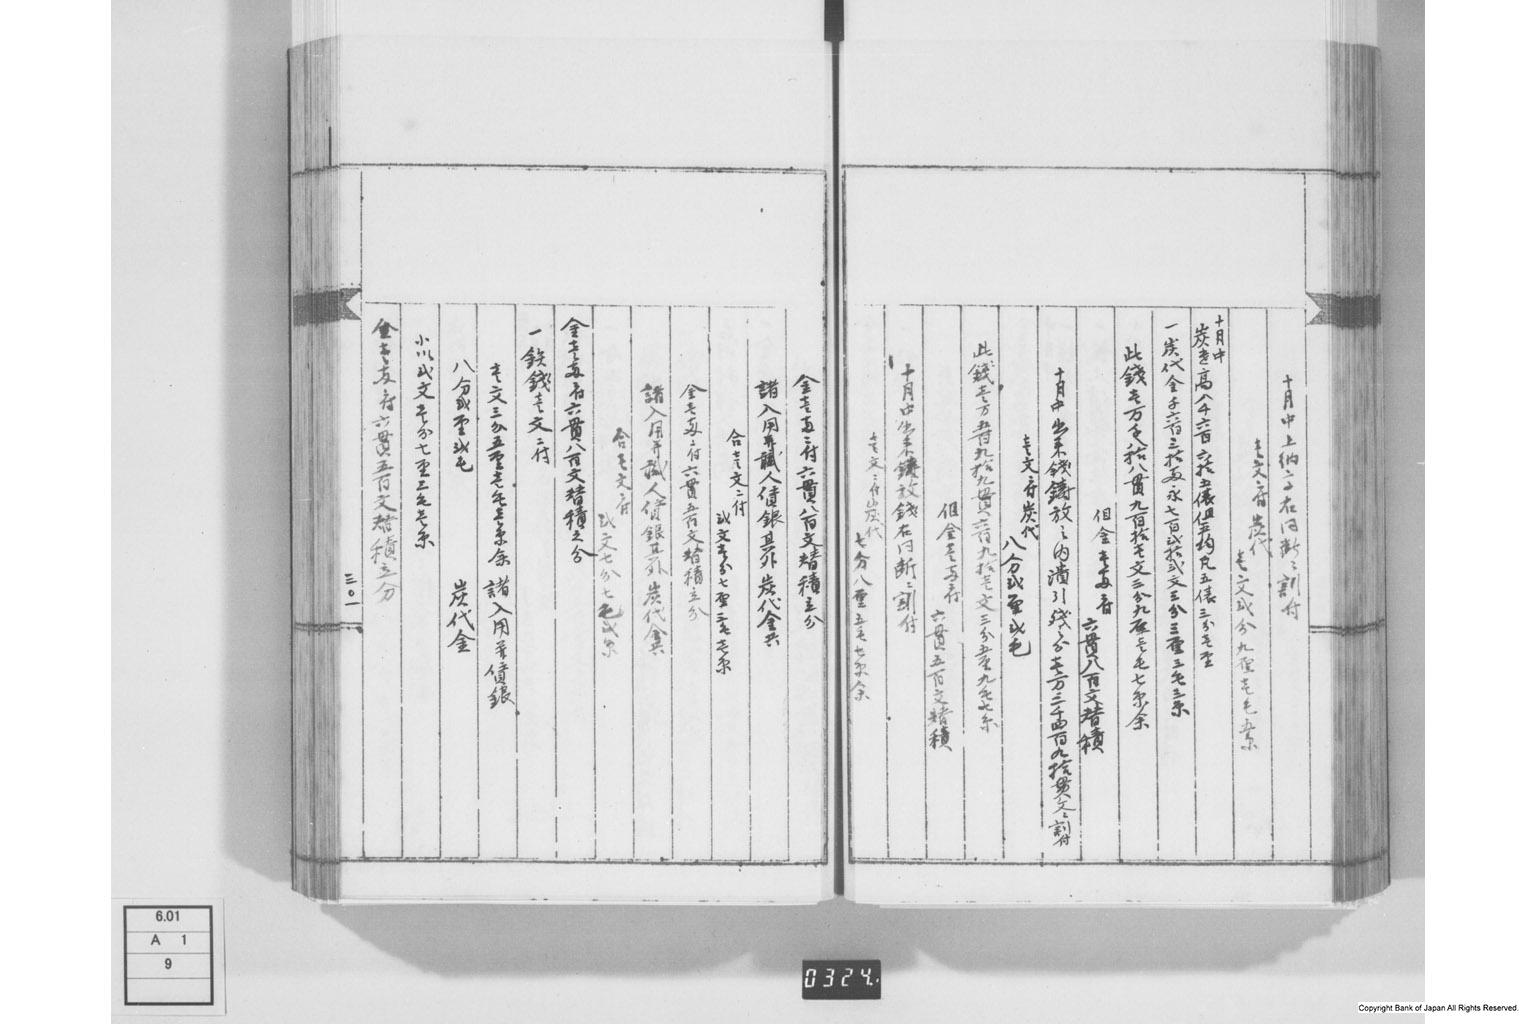 十月中上納之子右同断之割付
壱文ニ付炭代
壱文弐分九厘壱毛五糸
十月中
炭高八千六百六拾五俵 平均凡五俵三分壱厘
一炭代金千六百三拾両永七百弐拾弐文三分三厘三毛三糸
此銭壱万千拾八貫九百拾壱文三分九厘三毛七糸余
但金壱両ニ付
六貫八百文替積
十月中出来銭鋳放之内潰引残之分壱万三千四百九拾貫文之割付
壱文ニ付炭代
八分弐厘弐毛
此銭壱万五百九拾九貫六百九拾壱文三分五厘九毛七糸
但金壱両ニ付
六貫五百文替積
十月中出来鋳放銭右同断之割付
壱文ニ付炭代
七分八厘五毛七糸余
金壱両ニ付六貫八百文替積立分
諸入用并職人借銀其外炭代金共
合壱文ニ付
弐文壱分七厘三毛壱糸
金壱両ニ付六貫五百文替積立分
諸入用并職人借銀其外炭代金共
合壱文ニ付
弐文七分七毛弐糸
金壱両ニ付六貫八百文替積之分
一鉄銭壱文ニ付
壱文三分五厘壱毛壱糸余 諸入用并借銀
八分弐厘弐毛
炭代金
小以弐文壱分七厘三毛壱糸
金壱両ニ付六貫五百文替積立分
三〇一
6.01
A 1
9
0324
Copyright Bank of Japan All Rights Reserved.